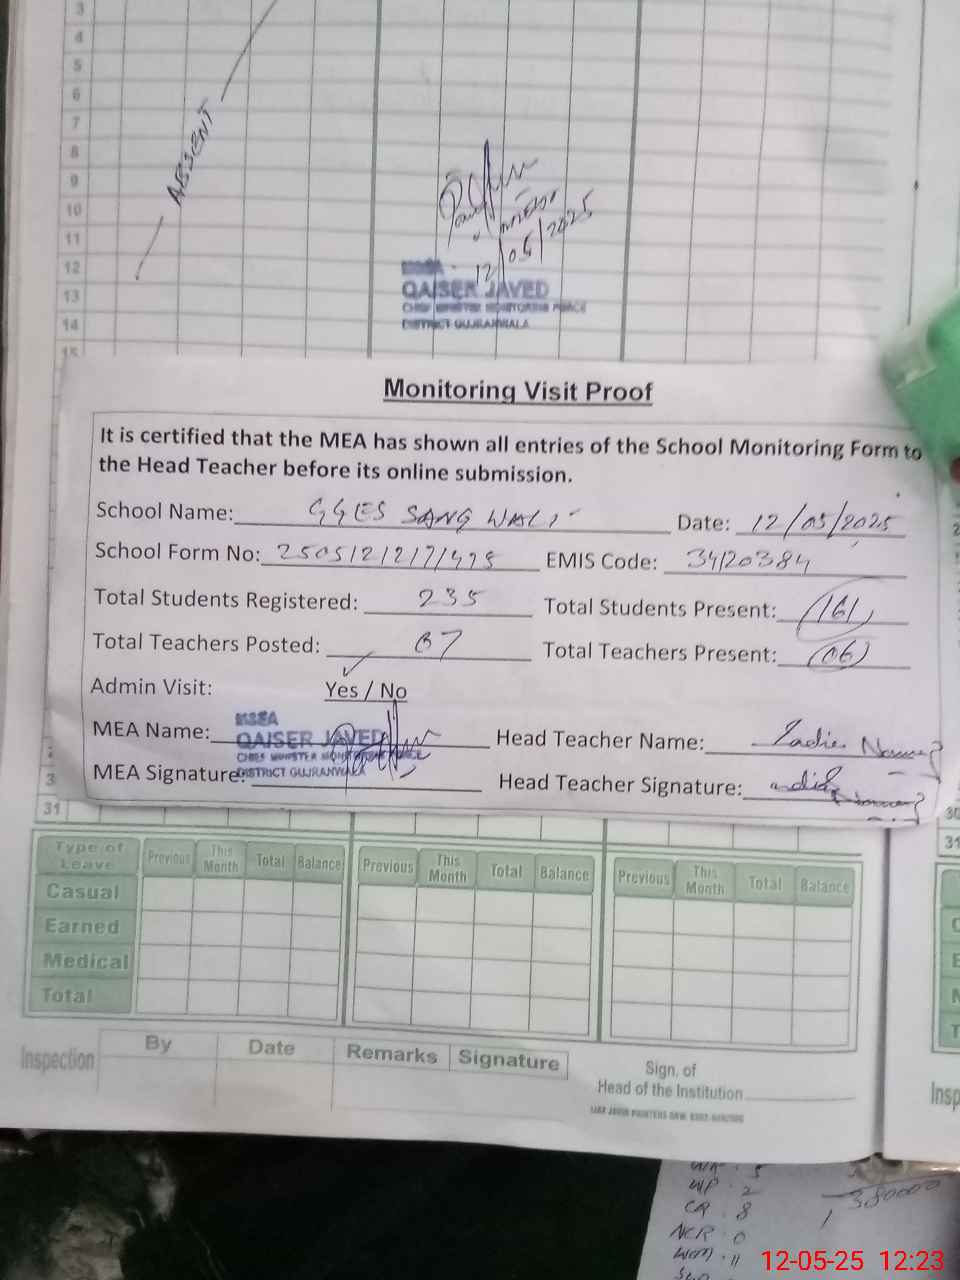 3
4
5
6
7
8
9
10
11
12
13
14
15
ABSENT
12/05/2025
MSEA
QAISER JAVED
CHIEF MINISTER MONITORING FORCE
DISTRICT GUJRANWALA
Monitoring Visit Proof
It is certified that the MEA has shown all entries of the School Monitoring Form to
the Head Teacher before its online submission.
School Name: GGES SANG WALI Date: 12/05/2025
School Form No: 2505121217/475 EMIS Code: 34120384
Total Students Registered: 235 Total Students Present: (161)
Total Teachers Posted: 07 Total Teachers Present: (06)
Admin Visit: Yes / No
MEA Name: Head Teacher Name:
MSEA
QAISER JAVED
CHIEF MINISTER MONITORING FORCE
DISTRICT GUJRANWALA
MEA Signature: Head Teacher Signature:
2
3
31
30
31
Type of Leave Previous This Month Total Balance Previous This Month Total Balance Previous This Month Total Balance
Casual
Earned
Medical
Total
Inspection By Date Remarks Signature
Sign. of
Head of the Institution
Insp
WP . 2
CR . 8
NCR . 0
380000
12-05-25 12:23